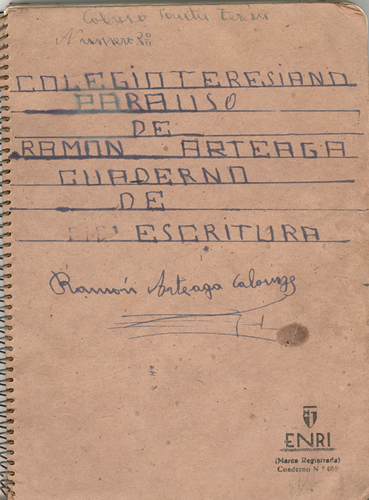 Numero 2º
COLEGIO TERESIANO
PARAUSO
DE
RAMON ARTEAGA
CUADERNO
DE
ESCRITURA
Ramón Arteaga
ENRI
(Marca Registrada)
Cuaderno N.º